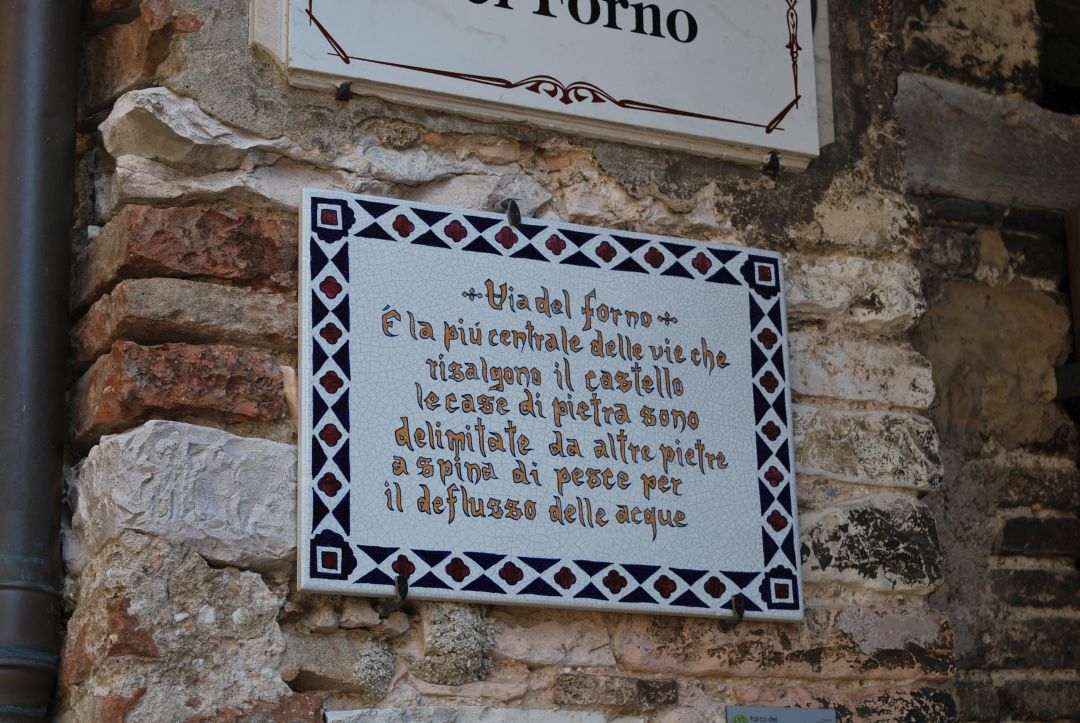 Forno
Via del forno
É la piú centrale delle vie che
risalgono il castello
le case di pietra sono
delimitate da altre pietre
a spina di pesce per
il deflusso delle acque
Parco dei